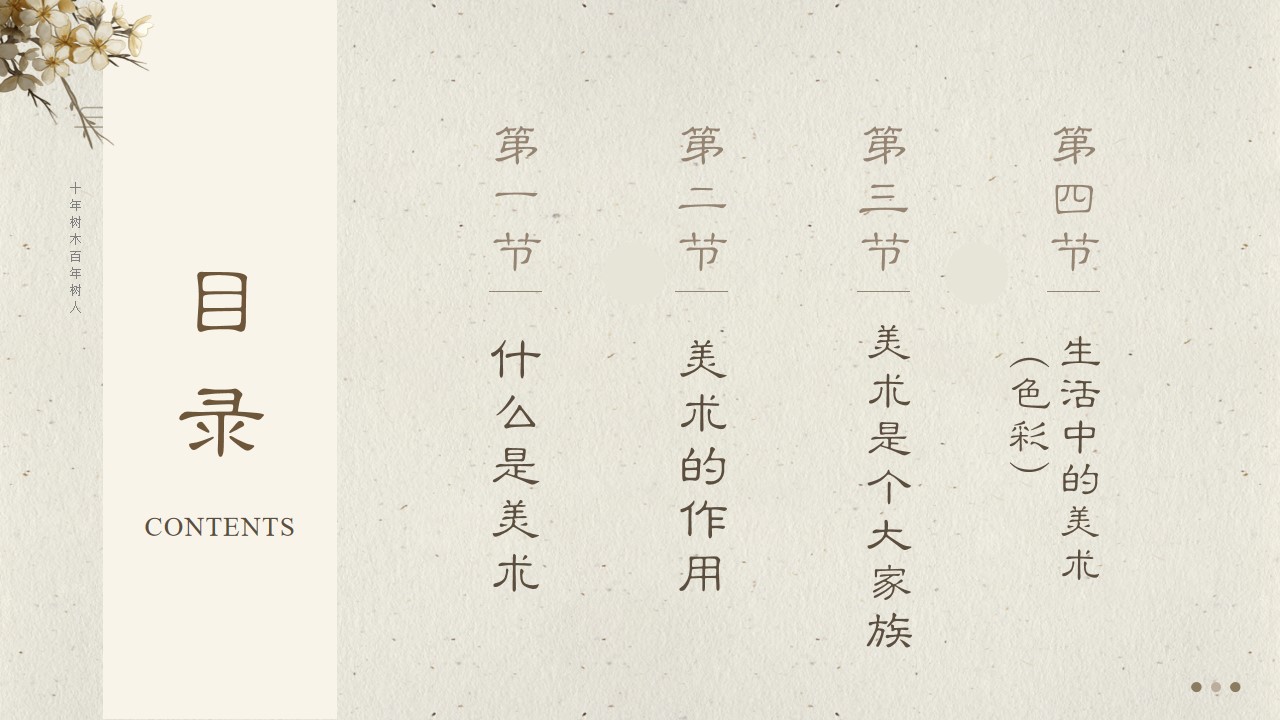 十年树木百年树人
目录
CONTENTS
第一节
什么是美术
第二节
美术的作用
第三节
美术是个大家族
第四节
生活中的美术
（色彩）